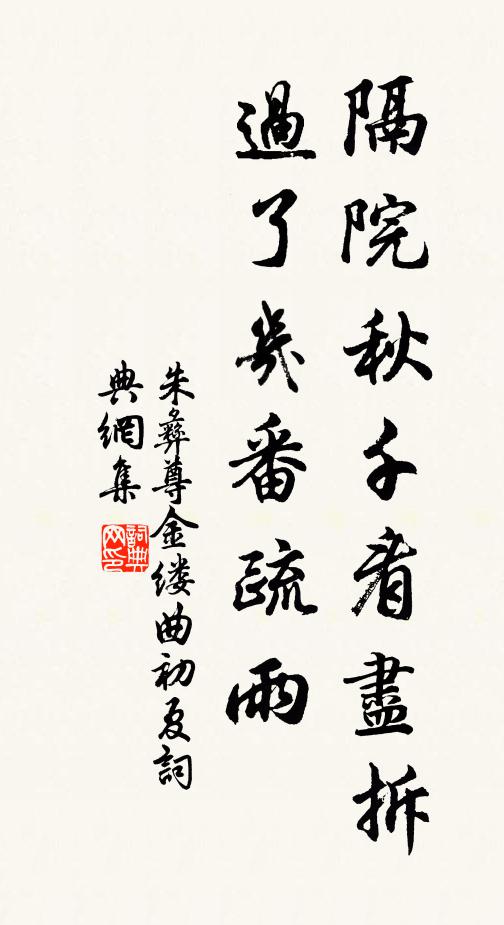 隔院秋千看盡拆
過了幾番疏雨
朱彝尊金缕曲初夏詞
典網集
詞典网印